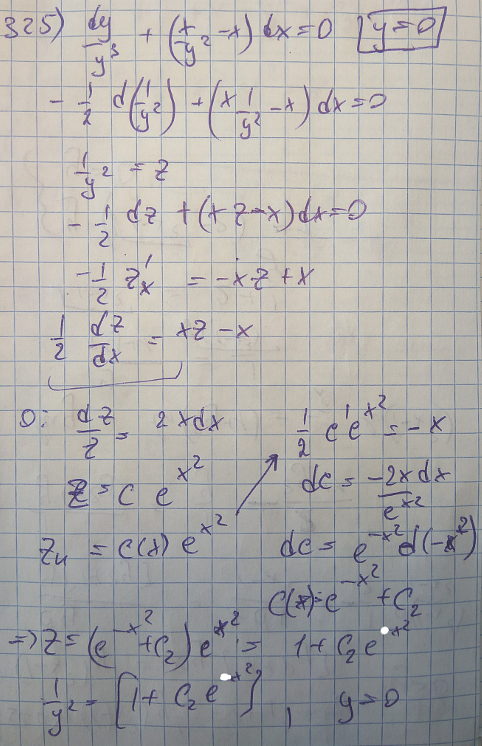 325) dy/y³ + (x/y² - x) dx = 0   y = 0
- 1/2 d(1/y²) + (x 1/y² - x) dx = 0
1/y² = z
- 1/2 dz + (x z - x) dx = 0
- 1/2 z'ₓ = - x z + x
1/2 dz/dx = xz - x
0: dz/z = 2xdx
z = c e^x²
zн = c(x) e^x²
1/2 c' e^x² = - x
dc = -2x dx / e^x²
dc = e^-x² d(-x²)
C(x) = e^-x² + C₂
=> z = (e^-x² + C₂) e^x² = 1 + C₂ e^x²
1/y² = [1 + C₂ e^x²] , y = 0